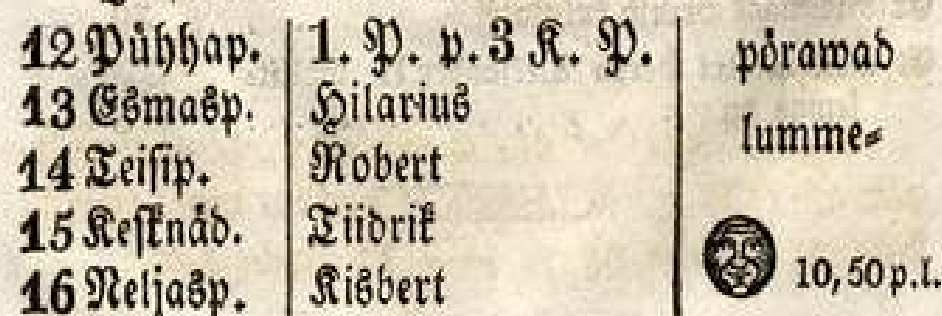 12 Pühhap. 1. P. p. 3 K. P. pörawad
13 Esmasp. Hilarius lumme-
14 Teisip. Robert
15 Kesknäd. Tiidrik
16 Neljasp. Kisbert 10,50 p.l.